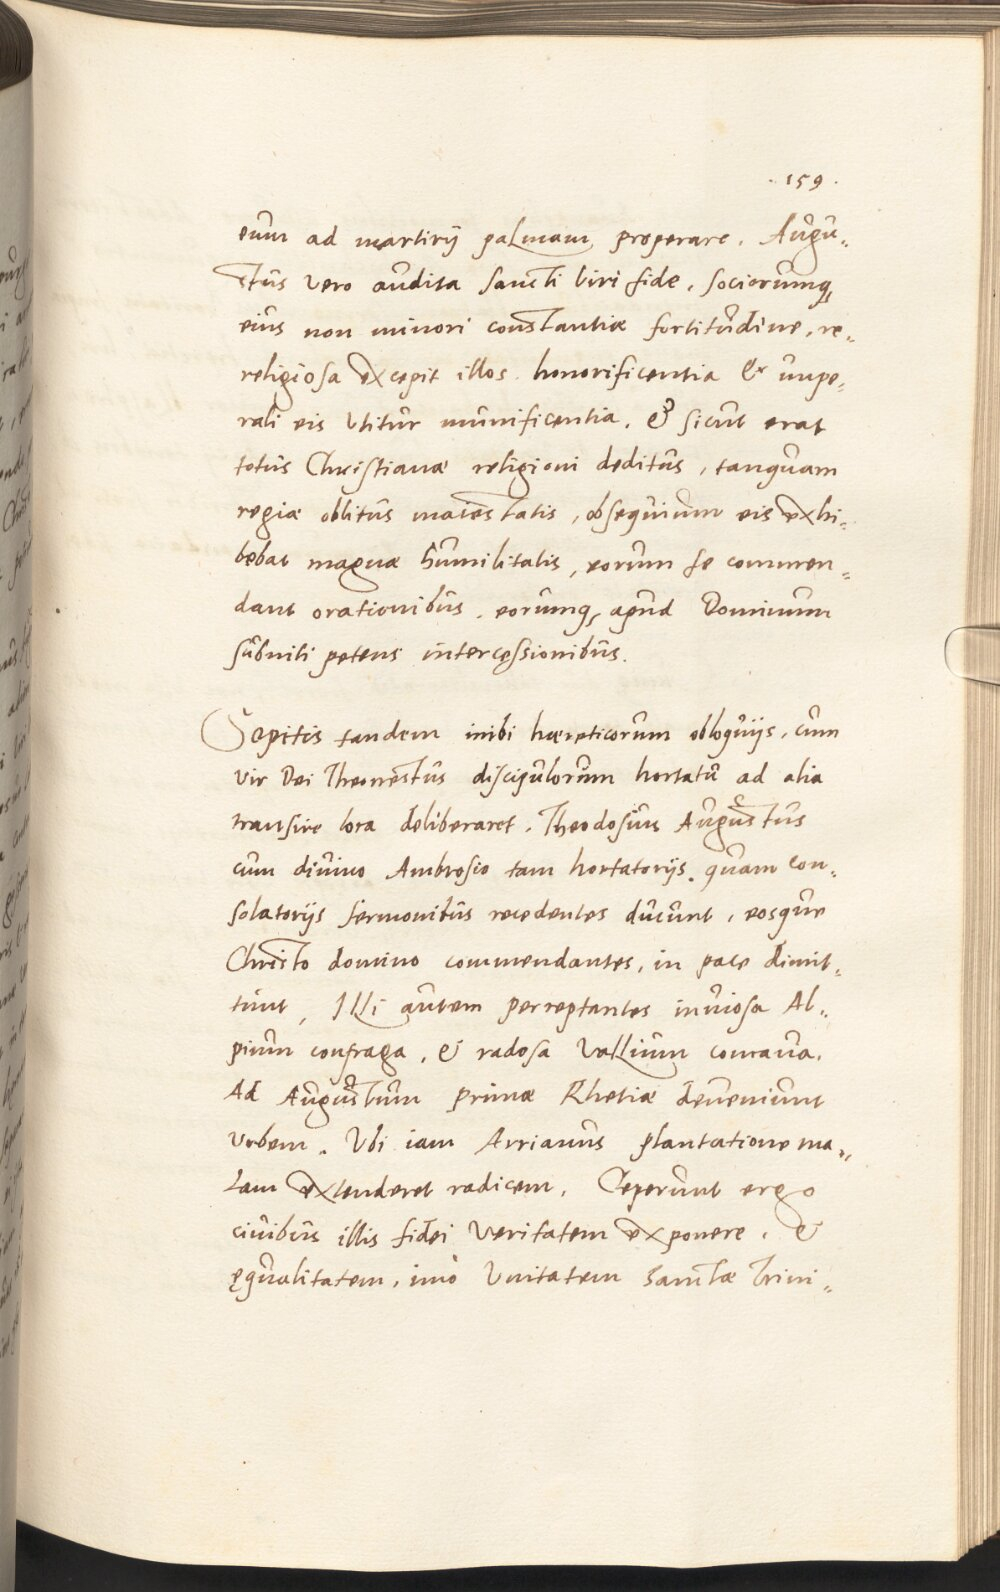 ·159·
eum ad martirÿ palmam properare. Augu-
stus vero audita sancti viri fide, sociorumq,
eius non minori constantiæ fortitudine, re-
religiosa excepit illos honorificentia & impe-
rali eis utitur munificentia. & sicut erat
totus Christianæ religioni deditus, tanquam
regiæ oblitus maiestatis, obsequium eis exhi-
bebat magnæ humilitatis, eorum se commen-
dans orationibus, eorumq, apud Dominum
subniti petens intercessionibus.
Sopitis tandem inibi hæreticorum obloquijs, cum
vir Dei Theonestus discipulorum hortatu ad alia
transire loca deliberaret. Theodosius Augustus
cum divino Ambrosio tam hortatorijs, quam con-
solatorijs sermonibus recedentes ducunt, eosque
Christo domino commendantes, in pace dimit-
tunt, Illi autem perreptantes inviosa Al-
pium confraga, & radosa Vallium concava.
Ad Augustum primæ Rhetiæ deveniunt
urbem. Ubi iam Arrianus plantatione ma-
lam extenderet radicem. Ceperunt ergo
civibus illis fidei veritatem exponere, &
ęqualitatem, imò Unitatem Sanctæ Trini-